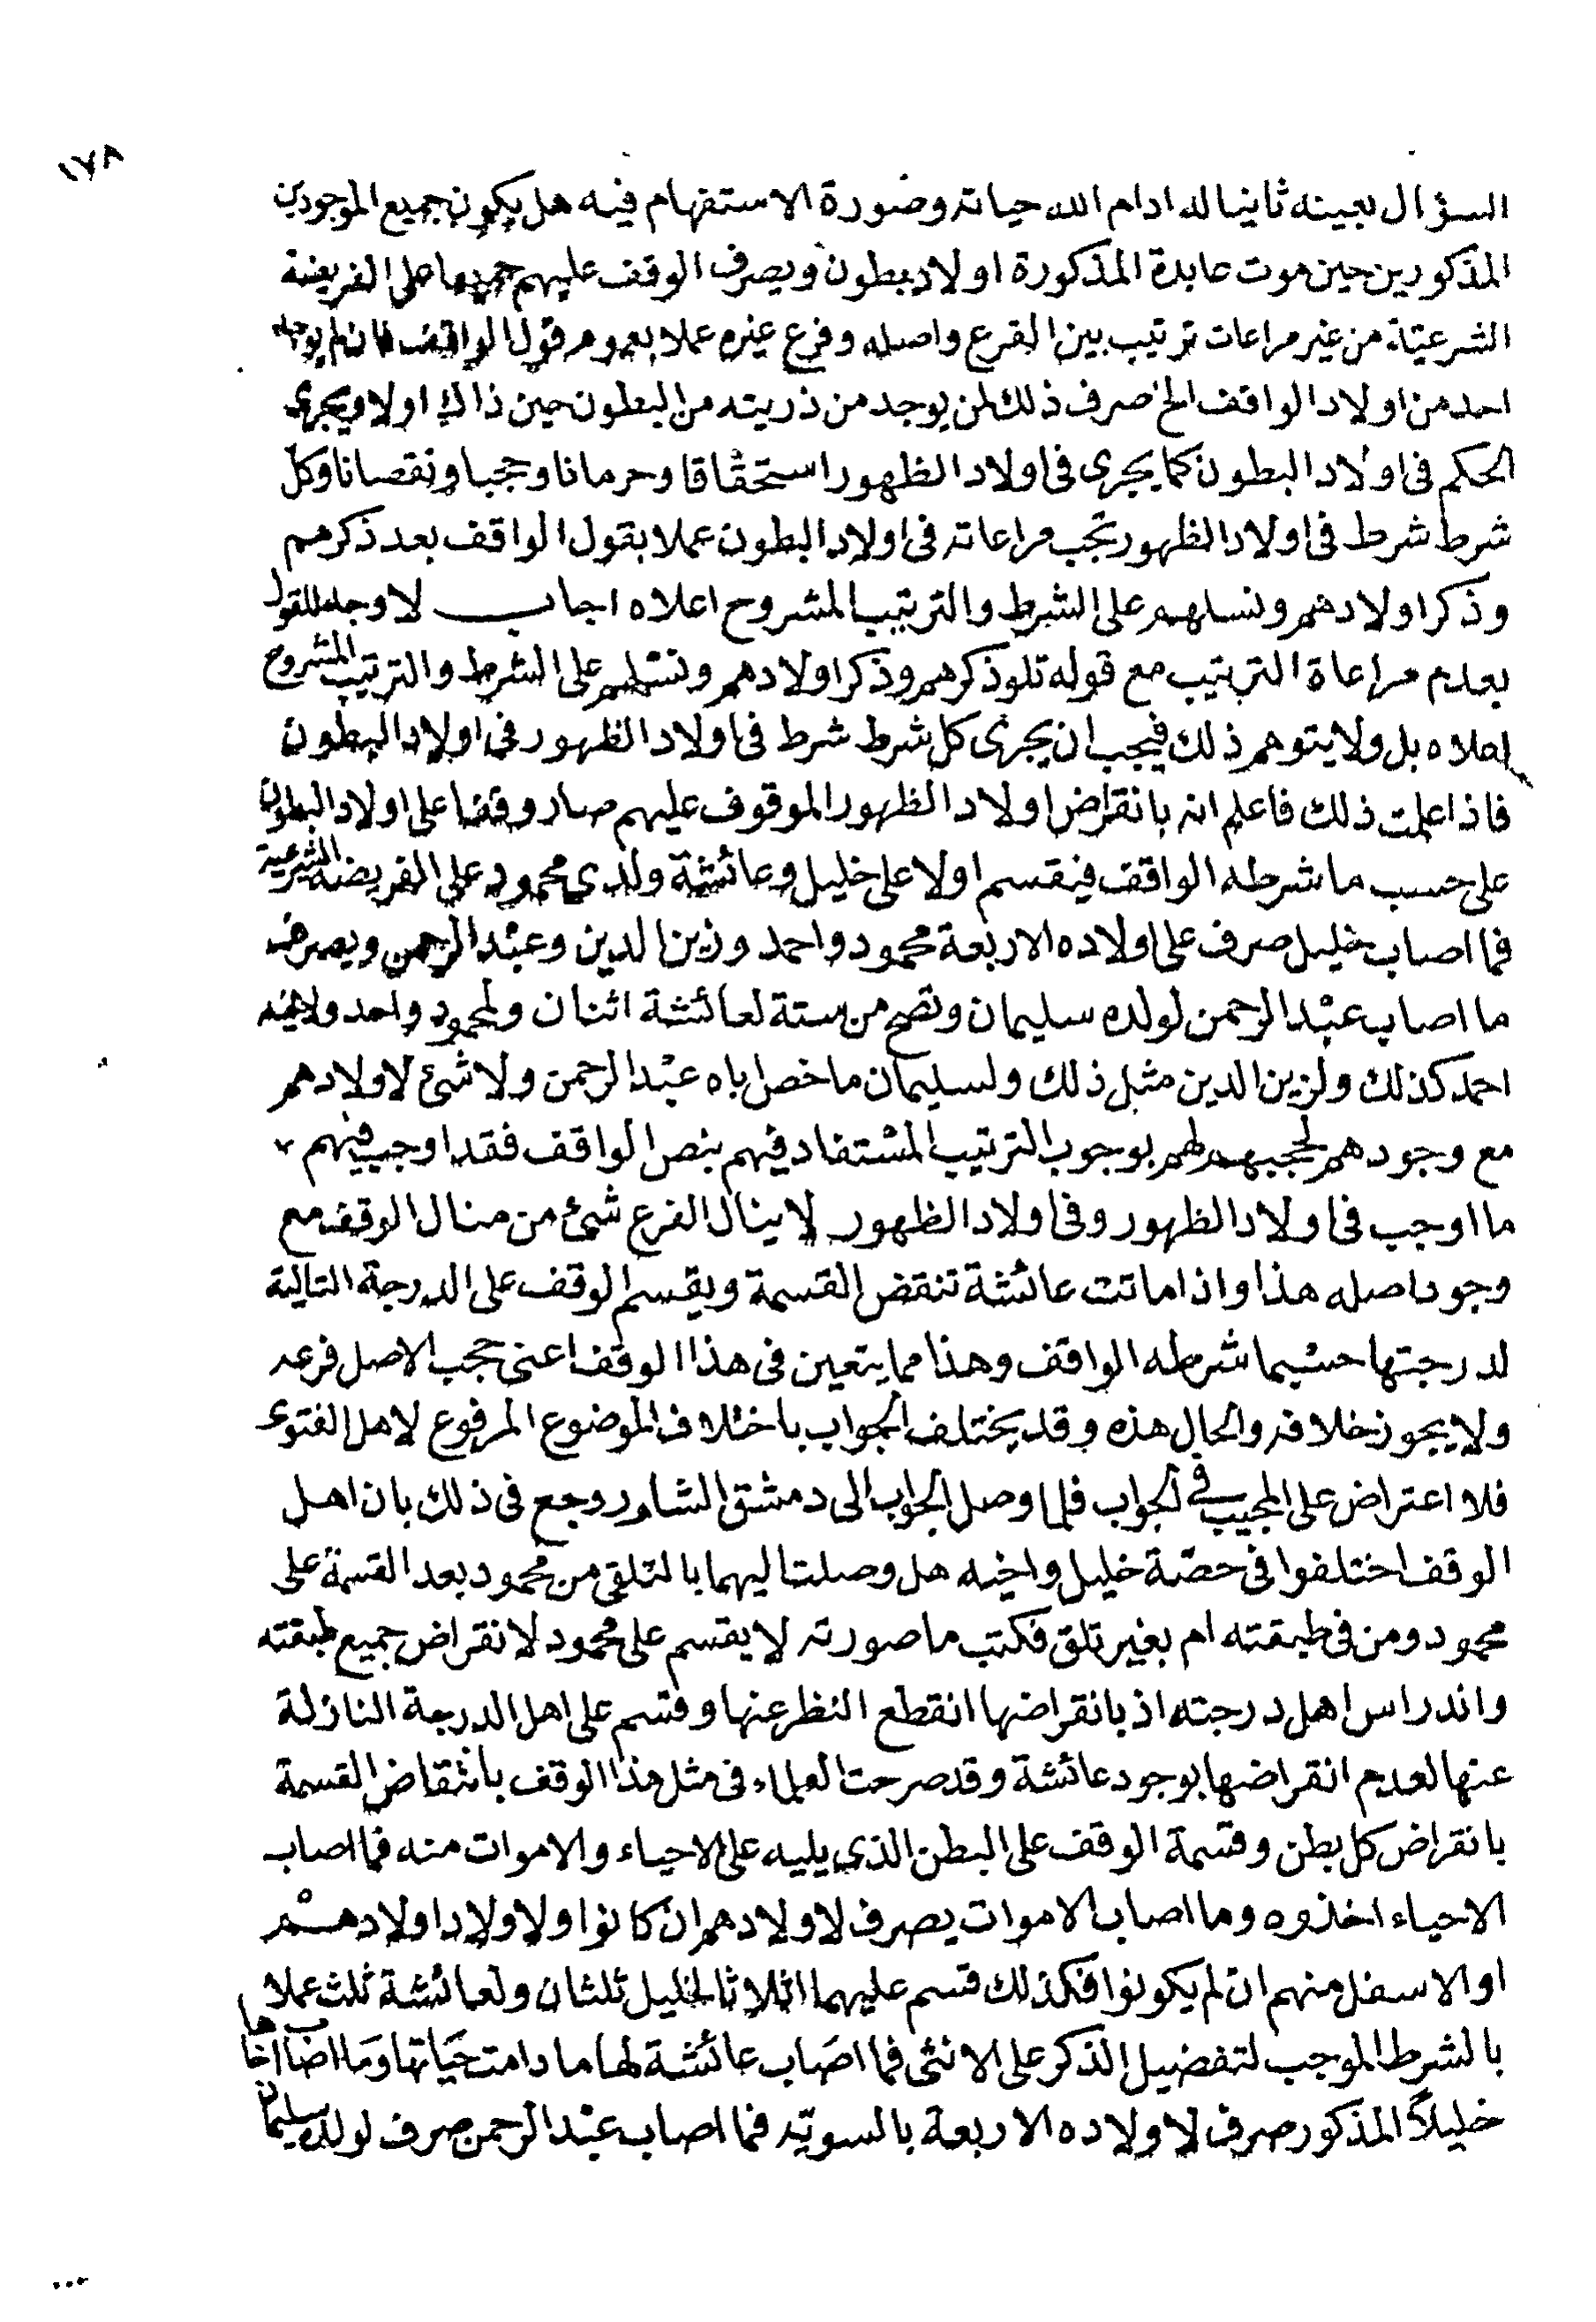 ١٧٨
السؤال بعينه ثانيا له ادام الله حياته وصورة الاستفهام فيه هل يكون جميع الموجودين
المذكورين حين موت عابدة المذكورة اولاد بطون ويصرف الوقف عليهم جميعا على الفريضة
الشرعية من غير مراعات ترتيب بين الفرع واصله وفرع غيره عملا بعموم قول الواقف فان لم يوجد
احد من اولاد الواقف الخ صرف ذلك لمن يوجد من ذريته من البطون حين ذاك اولا ويجرى
الحكم فى اولاد البطون كما يجرى فى اولاد الظهور استحقاقا وحرمانا وحجبا ونقصانا وكل
شرط شرط فى اولاد الظهور تجب مراعاته فى اولاد البطون عملا بقول الواقف بعد ذكرهم
وذكر اولادهم ونسلهم على الشرط والترتيب المشروح اعلاه اجاب لا وجه للقول
بعدم مراعاة الترتيب مع قوله تلو ذكرهم وذكر اولادهم ونسلهم على الشرط والترتيب المشروح
اعلاه بل ولا يتوهم ذلك فيجب ان يجرى كل شرط شرط فى اولاد الظهور فى اولاد البطون
فاذا علمت ذلك فاعلم انه بانقراض اولاد الظهور الموقوف عليهم صار وقفا على اولاد البطون
على حسب ما شرطه الواقف فيقسم اولا على خليل وعائشة ولدى محمود على الفريضة الشرعية
فما اصاب خليل صرف على اولاده الاربعة محمود واحمد وزين الدين وعبد الرحمن ويصرف
ما اصاب عبد الرحمن لولده سليمان وتصح من ستة لعائشة اثنان ولمحمود واحد ولاخيه
احمد كذلك ولزين الدين مثل ذلك ولسليمان ما خص اباه عبد الرحمن ولا شئ لاولادهم
مع وجودهم لحجبهم لهم بوجوب الترتيب المستفاد فيهم بنص الواقف فقد اوجب فيهم
ما اوجب فى اولاد الظهور وفى اولاد الظهور لا ينال الفرع شئ من منال الوقف مع
وجود اصله هذا واذا ماتت عائشة تنقض القسمة ويقسم الوقف على الدرجة التالية
لدرجتها حسبما شرطه الواقف وهذا مما يتعين فى هذا الوقف اعنى حجب الاصل فرعه
ولا يجوز خلافه والحال هذه وقد يختلف الجواب باختلاف الموضوع المرفوع لاهل الفتوى
فلا اعتراض على المجيب فى الجواب فلما وصل الجواب الى دمشق الشام روجع فى ذلك بان اهل
الوقف اختلفوا فى حصة خليل واخيه هل وصلتا اليهما بالتلقى من محمود بعد القسمة على
محمود ومن فى طبقته ام بغير تلق فكتب ما صورته لا يقسم على محمود لانقراض جميع طبقته
واندراس اهل درجته اذ بانقراضها انقطع النظر عنها وقسم على اهل الدرجة النازلة
عنها لعدم انقراضها بوجود عائشة وقد صرحت العلماء فى مثل هذا الوقف بانتقاض القسمة
بانقراض كل بطن وقسمة الوقف على البطن الذى يليه على الاحياء والاموات منه فما اصاب
الاحياء اخذوه وما اصاب الاموات يصرف لاولادهم ان كانوا ولاولاد اولادهم
او الاسفل منهم ان لم يكونوا فكذلك قسم عليهما اثلاثا لخليل ثلثان ولعائشة ثلث عملا
بالشرط الموجب لتفضيل الذكر على الانثى فما اصاب عائشة لها ما دامت حياتها وما اصاب اخاها
خليلاً المذكور صرف لاولاده الاربعة بالسوية فما اصاب عبد الرحمن صرف لولده سليمان